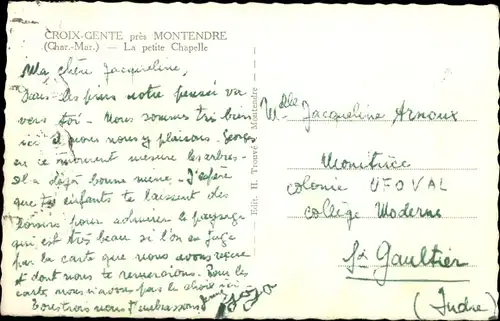 CROIX-GENTE près MONTENDRE
(Char.-Mar.) — La petite Chapelle
Ma chère Jacqueline,
Dans les pins notre pensée va
vers toi - Nous sommes très bien
ici et nous nous y plaisons. Georges
en ce moment mesure les arbres -
Il a déjà bonne mine - J'espère
que tes enfants te laissent des
loisirs pour admirer le paysage
qui est très beau si l'on en juge
par la carte que nous avons reçue
et dont nous te remercions. Pour les
cartes nous n'avons pas le choix ici
Tous trois nous t'embrassons
Edit. H. Trouvé Montendre
Mdlle Jacqueline Arnoux
Monitrice
colonie UFOVAL
collège Moderne
St Gaultier
(Indre)